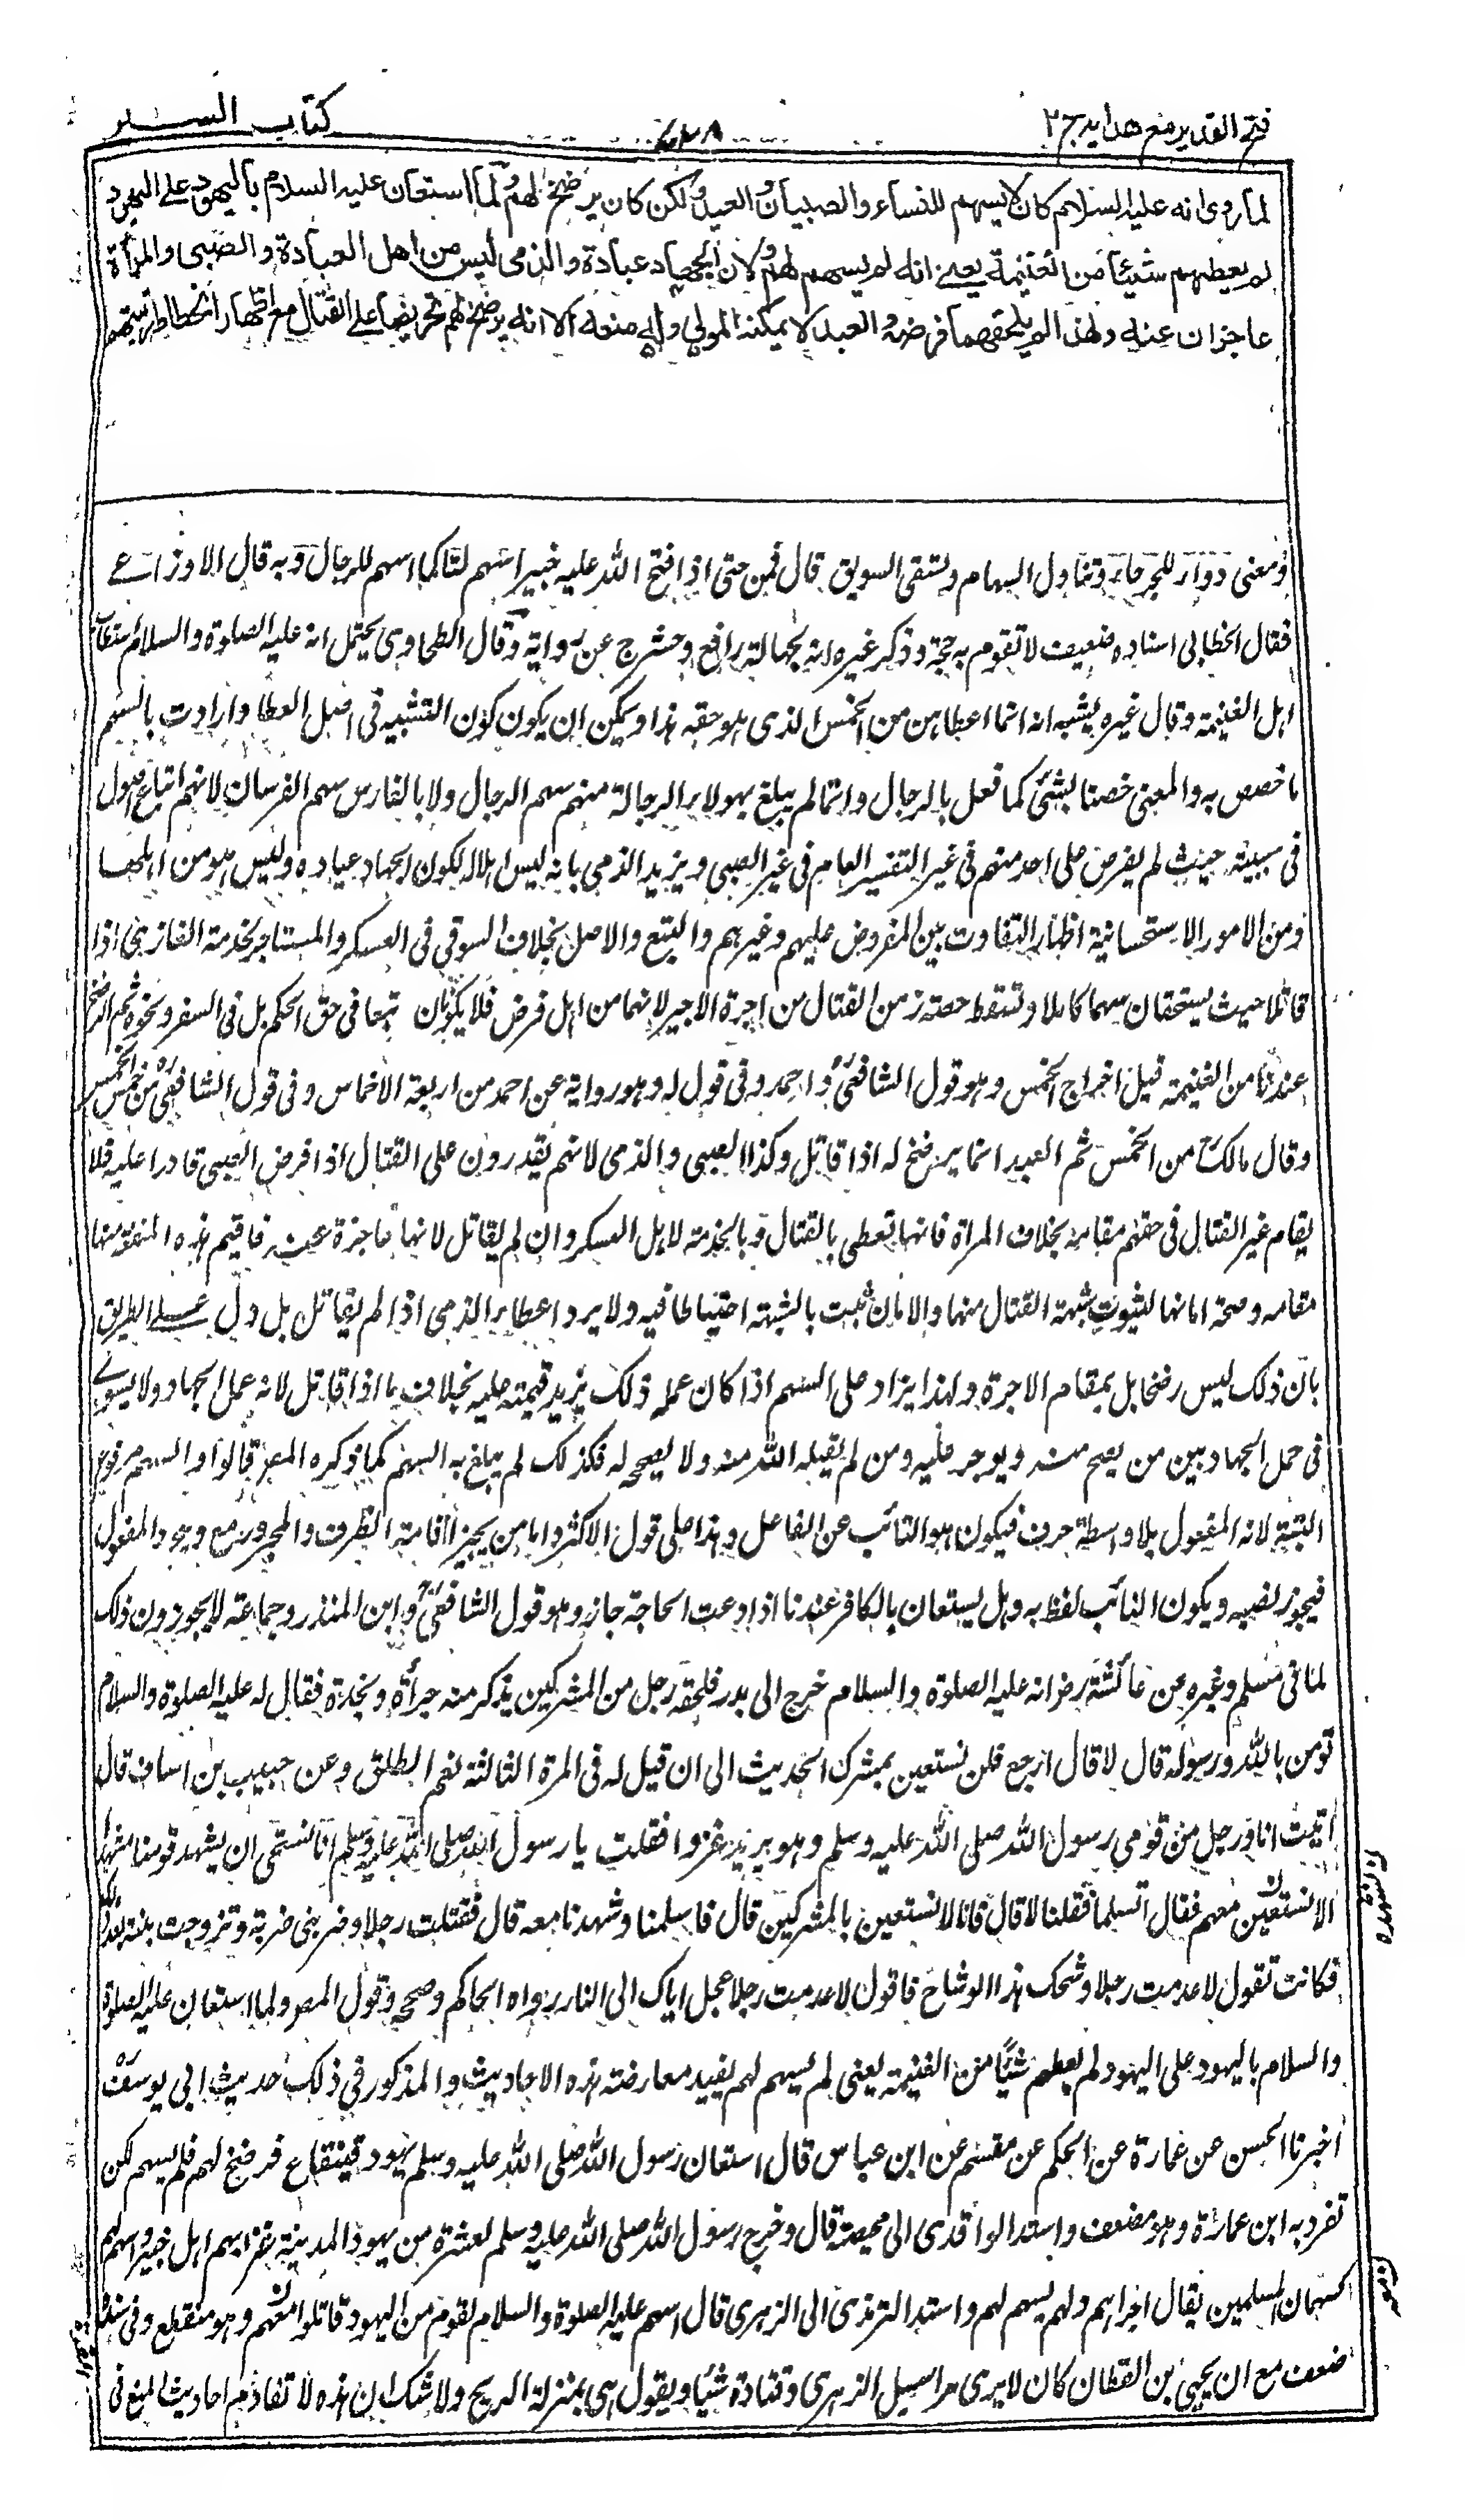 فتح القدير مع هدايه ج ٢
٧٣٨
كتاب السير
لما روى انه عليه السلام كان لا يسهم للنساء والصبيان والعبيد ولكن كان يرضخ لهم ولما استعان عليه السلام باليهود على اليهود
لم يعطهم شيئا من الغنيمة يعنى انه لم يسهم لهم ولان الجهاد عبادة والذمى ليس من اهل العبادة والصبى والمرأة
عاجزان عنه ولهذا لم يلحقهما فرضه والعبد لا يمكنه المولى وله منعه الا انه يرضخ لهم تحريضا على القتال مع اظهار انحطاط رتبتهم
ومعنى دواء للجرحى وتناول السهام وتسقى السويق قال قمن حتى اذا فتح الله عليه خيبر اسهم لنا كما اسهم للرجال وبه قال الاوزاعى
فقال الخطابى اسناده ضعيف لا تقوم به حجة وذكر غيره انه لجهالة رافع وحشرج عن رواية وقال الطحاوى يحتمل انه عليه الصلوة والسلام استطاب
اهل الغنيمة وقال غيره يشبه انه انما اعطاهن من الخمس الذى هو حقه هذا ويمكن ان يكون كون التشبيه فى اصل العطا وارادت بالسهم
ما خصص به والمعنى خصنا بشئ كما فعل بالرجال وانما لم يبلغ بهولاء الرجالة منهم سهم الرجال ولا بالفارس سهم الفرسان لانهم اتباع اصول
فى سببية حيث لم يفرض على احد منهم فى غير النفير العام فى غير الصبى ويزيد الذمى بانه ليس اهلا له لكون الجهاد عباده وليس هو من اهلها
ومن الامور الاستحسانية اظهار التفاوت بين المفروض عليهم وغيرهم والتبع والاصل بخلاف السوقى فى العسكر والمستاجر لخدمة الغازى اذا
قاتلا حيث يستحقان سهما كاملا وتسقط حصته زمن القتال من اجرة الاجير لانهما من اهل فرض فلا يكونان تبعا فى حق الحكم بل فى السفر ونحوه ثم الرضخ
عندنا من الغنيمة قبل اخراج الخمس وهو قول الشافعى واحمد وفى قول له وهو رواية عن احمد من اربعة الاخماس وفى قول الشافعى من خمس الخمس
وقال مالك من الخمس ثم العبد انما يرضخ له اذا قاتل وكذا الصبى والذمى لانهم يقدرون على القتال اذا فرض الصبى قادرا عليه فلا
يقام غير القتال فى حقهم مقامه بخلاف المراة فانها تعطى بالقتال وبالخدمة لاهل العسكر وان لم تقاتل لانها عاجزة عنه فاقيم هذه المنفعة منها
مقامه وصحة امانها لثبوت شبهة القتال منها والامان ثبت بالشبهة احتياطا فيه ولا يرد اعطاء الذمى اذا لم يقاتل بل دل على الطريق
بان ذلك ليس رضخا بل بمقام الاجرة ولهذا يزاد على السهم اذا كان عمله ذلك يزيد قيمته عليه بخلاف ما اذا قاتل لانه عمل الجهاد ولا يسوى
فى عمل الجهاد بين من يصح منه ويوجر عليه ومن لم يقبله الله منه ولا يصححه له فكذلك لم يبلغ به السهم كما ذكره المصر قالوا والسهم مرفوع
البتة لانه المفعول بلا واسطة حرف فيكون هو النائب عن الفاعل وهذا على قول الاكثر واما من يجيز اقامة الظرف والمجرور مع وجود المفعول
فيجوز نصبه ويكون النائب لفظ به وهل يستعان بالكافر عندنا اذا دعت الحاجة جاز وهو قول الشافعى وابن المنذر وجماعة لا يجوزون ذلك
لما فى مسلم وغيره عن عائشة رض انه عليه الصلوة والسلام خرج الى بدر فلحقه رجل من المشركين يذكر منه جرأة ونجدة فقال له عليه الصلوة والسلام
تؤمن بالله ورسوله قال لا قال ارجع فلن نستعين بمشرك الحديث الى ان قيل له فى المرة الثالثة نعم انطلق وعن حبيب بن اساف قال
اتيت انا ورجل من قومى رسول الله صلى الله عليه وسلم وهو يريد غزوا فقلت يا رسول الله صلى الله عليه وسلم انا نستحى ان يشهد قومنا مشهدا
الا نستعين معهم فقال اتسلما فقلنا لا قال فانا لا نستعين بالمشركين قال فاسلمنا وشهدنا معه قال فقتلت رجلا وضربنى ضربة وتزوجت بنته بعد ذلك
فكانت تقول لا عدمت رجلا وشحك هذا الوشاح فاقول لا عدمت رجلا عجل اباك الى النار رواه الحاكم وصححه وقول المصر ولما استعان عليه الصلوة
والسلام باليهود على اليهود لم يعطهم شيئا من الغنيمة يعنى لم يسهم لهم يفيد معارضة هذه الاحاديث والمذكور فى ذلك حديث ابى يوسف
اخبرنا الحسن عن عمارة عن الحكم عن مقسم عن ابن عباس قال استعان رسول الله صلى الله عليه وسلم بيهود قينقاع فرضخ لهم فلم يسهم لكن
تفرد به ابن عمارة وهو مضعف واسند الواقدى الى محيصة قال وخرج رسول الله صلى الله عليه وسلم بعشرة من يهود المدينة غزا بهم اهل خيبر واسهم لهم
كسهمان المسلمين يقال احذاهم ولم يسهم لهم واسند الترمذى الى الزهرى قال اسهم عليه الصلوة والسلام لقوم من اليهود قاتلوا معهم وهو منقطع وفى سنده
ضعف مع ان يحيى بن القطان كان لا يرى مراسيل الزهرى وقتادة شيئا ويقول هى بمنزلة الريح ولا شك ان هذه لا تفاوم احاديث المنع فى